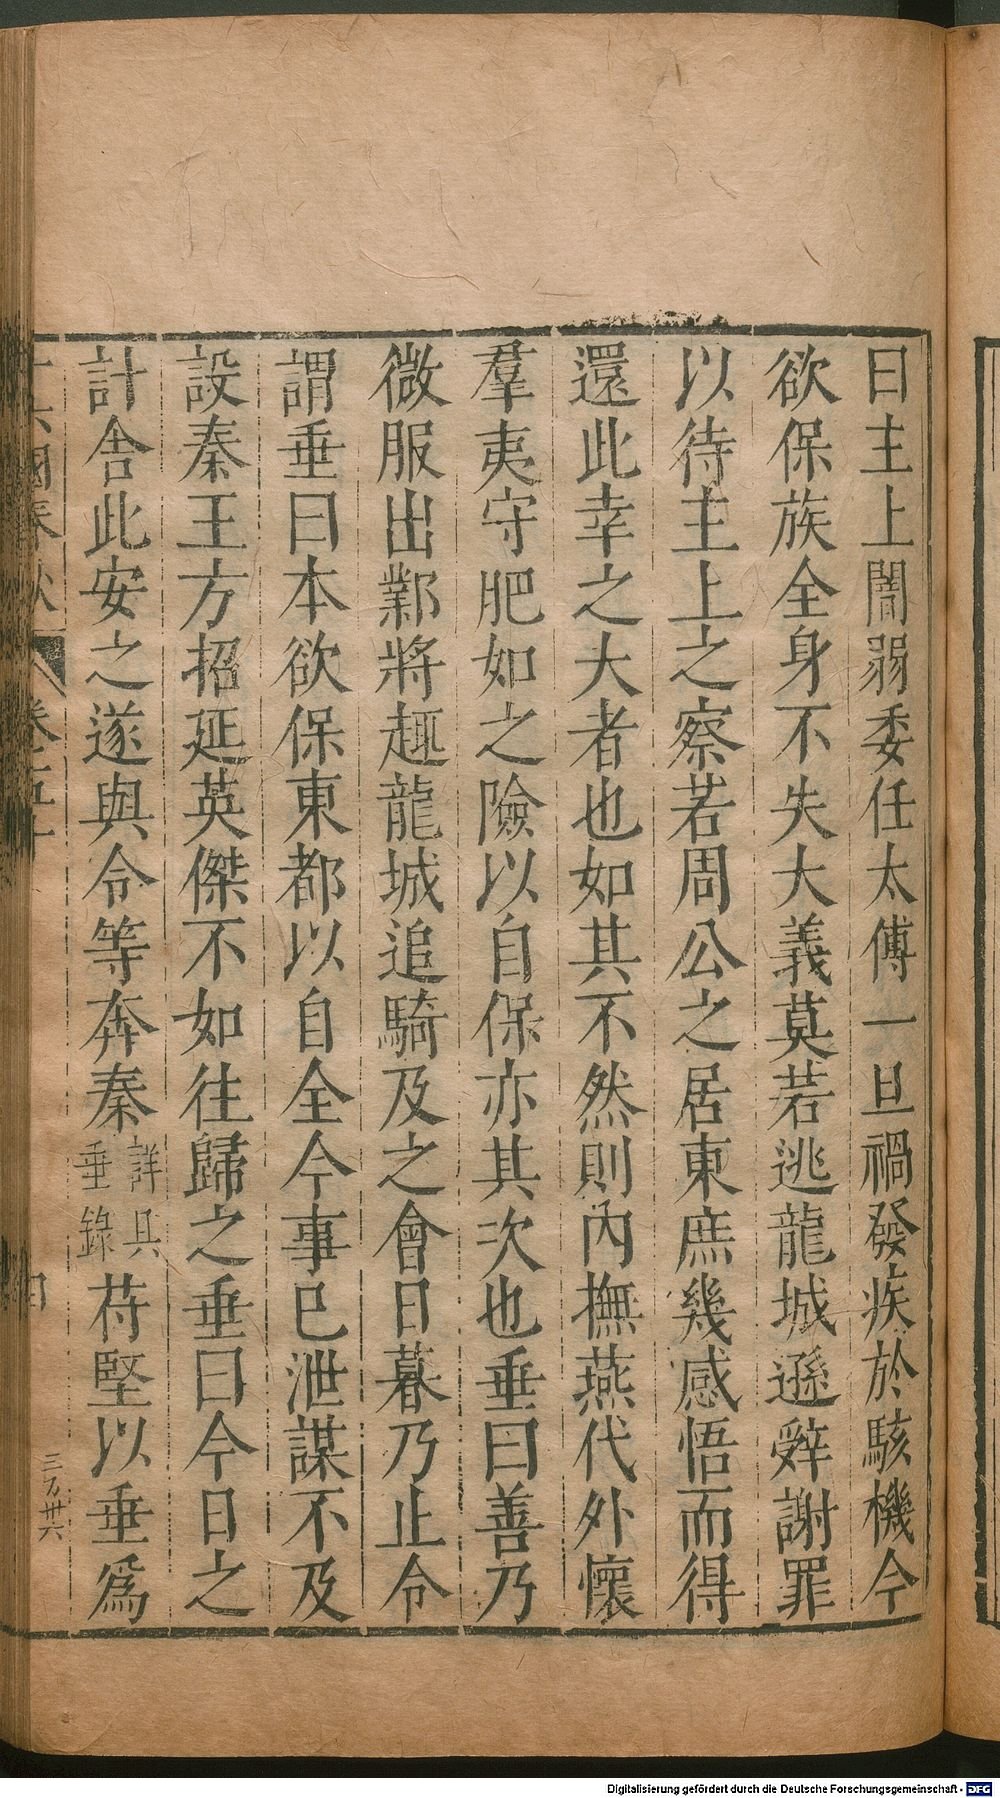 曰主上闇弱委任太傅一旦禍發疾於駭機今
欲保族全身不失大義莫若逃龍城遜辤謝罪
以待主上之察若周公之居東庶幾感悟而得
還此幸之大者也如其不然則內撫燕代外懷
羣夷守肥如之險以自保亦其次也垂曰善乃
微服出鄴將趣龍城追騎及之會日暮乃止令
謂垂曰本欲保東都以自全今事已泄謀不及
設秦王方招延英傑不如往歸之垂曰今日之
計舍此安之遂與令等奔秦詳具垂錄苻堅以垂爲
三万卅六
Digitalisierung gefördert durch die Deutsche Forschungsgemeinschaft - DFG